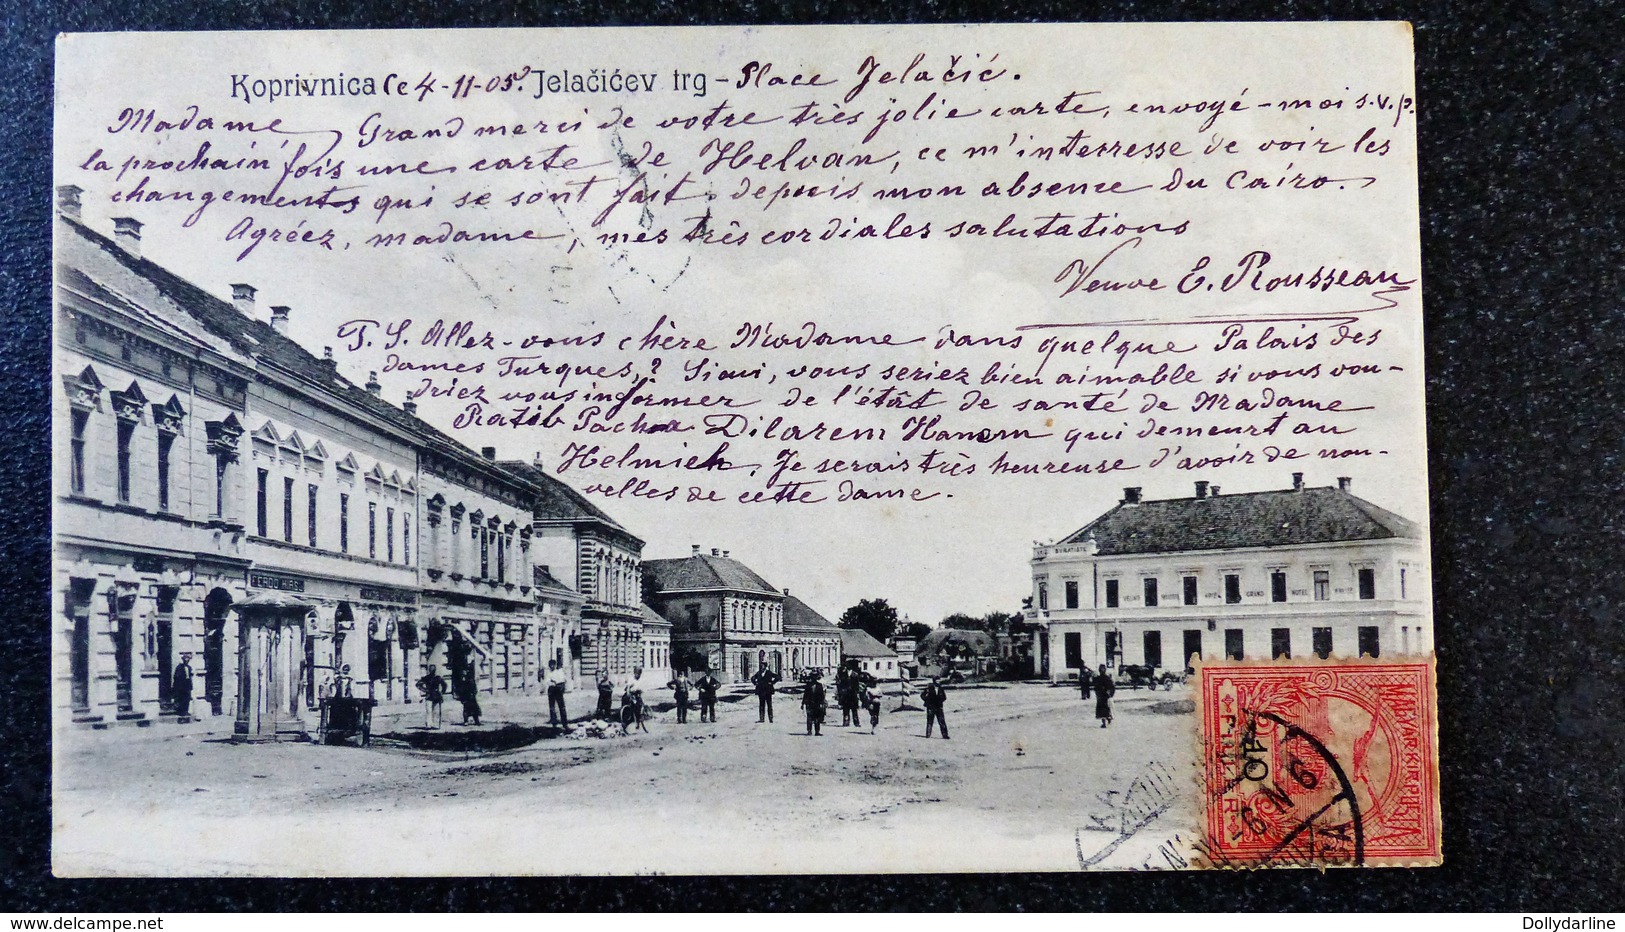 Koprivnica Ce 4-11-05. Jelačićev trg - Place Jelačić.
Madame, Grand merci de votre très jolie carte, envoyé-moi s.v.p.
la prochain' fois une carte de Helvan, ce m'interresse de voir les
changements qui se sont fait depuis mon absence du Caíro.
Agréez, madame, mes très cordiales salutations
Veuve E. Rousseau
P. S. Allez-vous chère Madame dans quelque Palais des
dames Turques,? Si oui, vous seriez bien aimable si vous vou-
driez vous informer de l'étât de santé de Madame
Ratib Pacha Dilarem Hanem qui demeurt au
Helmieh, Je serais très heureuse d'avoir de nou-
velles de cette dame.
FERDO HIRS
GRAND HOTEL
MAGYAR KIR. POSTA
10
FILLÉR
Dollydarline